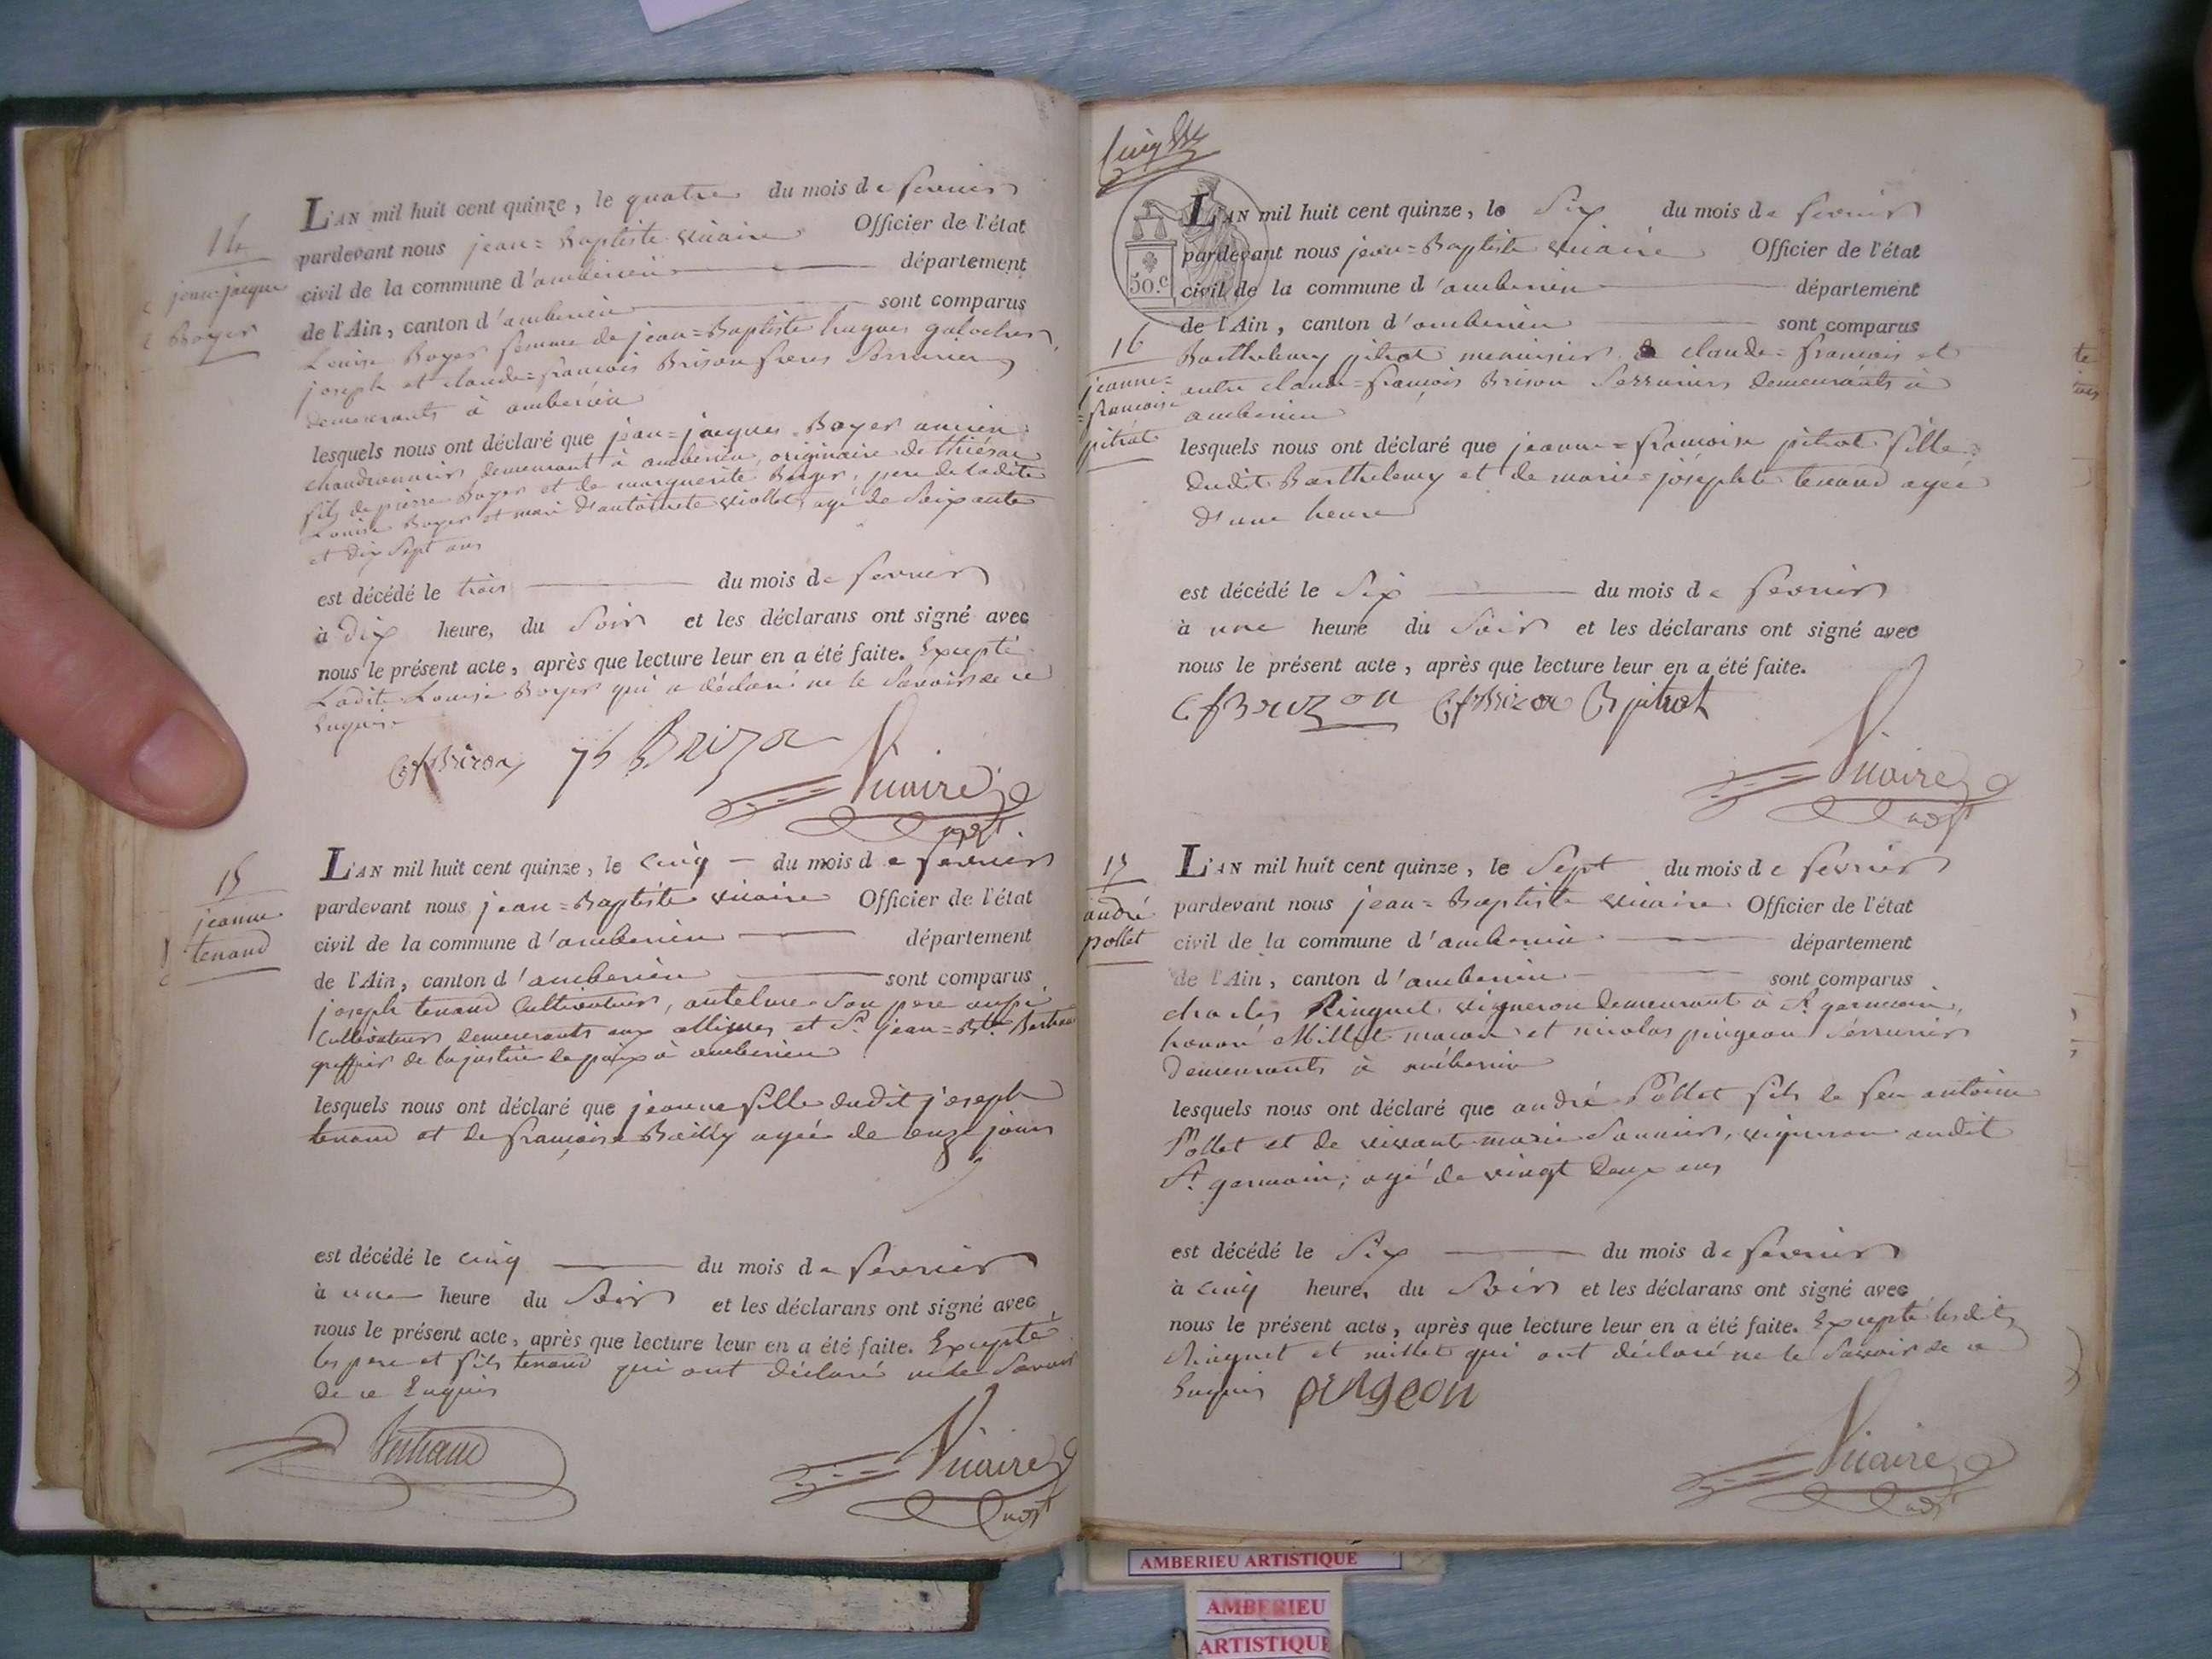 14
jean-jacque
Boyer
L'AN mil huit cent quinze, le quatre du mois de fevrier
pardevant nous jean=Baptiste vicaire Officier de l'état
civil de la commune d'amberieu département
de l'Ain, canton d'amberieu sont comparus
Louise Boyer femme de jean=Baptiste hugues galocher,
joseph et claude=françois Brison freres Serruriers
demeurants à amberieu
lesquels nous ont déclaré que jean=jacques Boyer ancien
chaudronnier demeurant à amberieu, originaire de
fils de pierre Boyer et de marguerite Boyer, pere de ladite
Louise Boyer et mari d'antoinette viollet, agé de Soixante
et dix Sept ans
est décédé le trois du mois de fevrier
à dix heure, du Soir et les déclarans ont signé avec
nous le présent acte, après que lecture leur en a été faite. Excepté
Ladite Louise Boyer qui a déclaré ne le Savoir de ce
Enquise
cfBrizon jh Brizon
Vicaire
adjt
15
jeanne
tenand
L'AN mil huit cent quinze, le cinq du mois de fevrier
pardevant nous jean=Baptiste vicaire Officier de l'état
civil de la commune d'amberieu département
de l'Ain, canton d'amberieu sont comparus
joseph tenand Cultivateur, antelme Son pere aussi
Cultivateur demeurants aux allimes et Sr jean=Bte Bertrand
greffier de la justice de paix à amberieu
lesquels nous ont déclaré que jeanne fille dudit joseph
tenand et de françoise Bailly agée de onze jours
est décédé le cinq du mois de fevrier
à une heure du Soir et les déclarans ont signé avec
nous le présent acte, après que lecture leur en a été faite. Excepté
les pere et fils tenand qui ont déclaré ne le Savoir
de ce Enquis
Bertrand
Vicaire
adjt
50.c
16
jeanne=
françoise
pitrat
L'AN mil huit cent quinze, le Six du mois de fevrier
pardevant nous jean=Baptiste vicaire Officier de l'état
civil de la commune d'amberieu département
de l'Ain, canton d'amberieu sont comparus
Barthelemy pitrat menuisier & claude=françois et
autre claude=françois Brison Serruriers demeurants à
amberieu
lesquels nous ont déclaré que jeanne=françoise pitrat fille
dudit Barthelemy et de marie=josephte tenand agée
d'une heure
est décédé le Six du mois de fevrier
à une heure du Soir et les déclarans ont signé avec
nous le présent acte, après que lecture leur en a été faite.
cfBrizon cfBrizon B pitrat
Vicaire
adjt
17
andré
pollet
L'AN mil huit cent quinze, le Sept du mois de fevrier
pardevant nous jean=Baptiste vicaire Officier de l'état
civil de la commune d'amberieu département
de l'Ain, canton d'amberieu sont comparus
charles Ringuet vigneron demeurant à St germain,
honoré Millet maçon et nicolas pingeon Serrurier
demeurants à amberieu
lesquels nous ont déclaré que andré Pollet fils de feu antoine
Pollet et de vivante marie Saunier, vigneron audit
St germain, agé de vingt Deux ans
est décédé le Six du mois de fevrier
à cinq heure, du Soir et les déclarans ont signé avec
nous le présent acte, après que lecture leur en a été faite. Excepté lesdits
Ringuet et millet qui ont déclaré ne le Savoir de ce
Enquis pingeon
Vicaire
adjt
AMBERIEU ARTISTIQUE
AMBERIEU
ARTISTIQUE